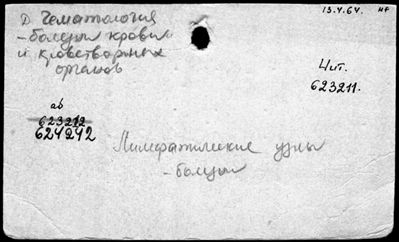 13.4.64. НГ
Д Гематология
- болезни крови
и кроветворных
органов
Чит.
623211.
ав
623212
624242
Лимфатические узлы
- болезни